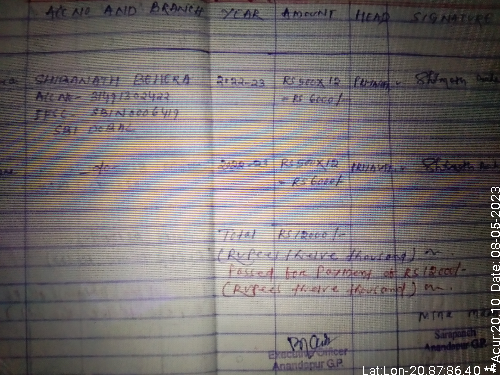 A/C NO AND BRANCH YEAR AMOUNT HEAD SIGNATURE
SHIBANATH BEHERA 2022-23 RS 500X12
A/C No- 31491202422 = RS 6000/-
IFSC- SBIN0006419
SBI
-do- 2022-23 RS 500X12
= RS 6000/-
Total RS 12000/-
(Rupees twelve thousand)
Passed for Payment of RS 12000/-
(Rupees twelve thousand)
Executive Officer
Anandapur G.P.
Sarapanch
Anandapur G.P.
**Acur:20.10 Date: 08-05-2023
Lat:Lon-20.87:86.40 **